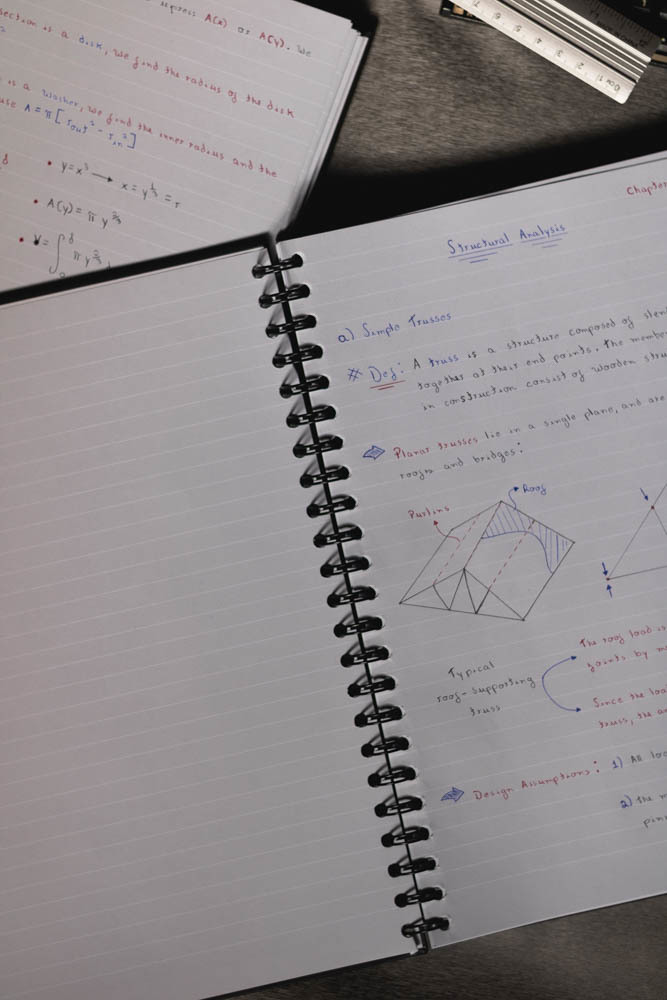 express A(x) or A(y). We
section is a disk, we find the radius of the disk
is a washer, we find the inner radius and the
use A = π[r_out² - r_in²]
• y = x³ → x = y^⅓ = r
• A(y) = π y^⅔
• V = ∫ π y^⅔
Chapter
Structural Analysis
a) Simple Trusses
* Def: A truss is a structure composed of slen
together at their end points. The member
in construction consist of wooden stru
Planar trusses lie in a single plane, and are
roofs and bridges:
Purlins
Roof
Typical
roof-supporting
truss
The roof load is
joints by m
Since the loa
truss, the an
Design Assumptions: 1) All loa
2) the m
pin